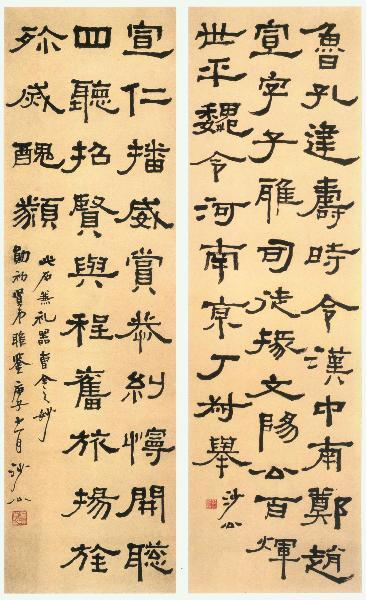 魯孔建壽時令漢中南鄭趙
宣字子雅司徒掾文陽公百煇
世平魏令河南京丁叔舉
沙公
宣仁播威賞恭糾慢開聰
四聽招賢與程奮旅揚旌
殄威醜類
此石兼礼器曹全之妙
勛初賢弟雅鑒庚子十一月沙公